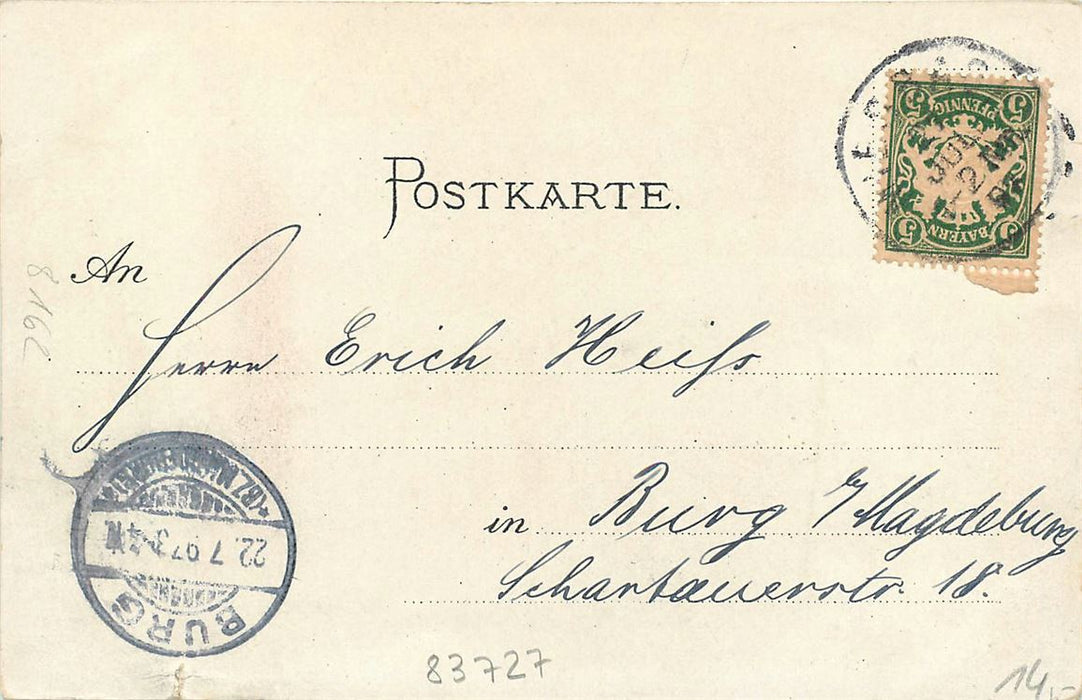 POSTKARTE.
5 PFENNIG 5
5 BAYERN 5
An
Herrn Erich Heiſs
in Burg b/Magdeburg
Schartauerstr. 18.
BURG
22.7.97.3-4N
(BZ. MAGDEBURG)
8162
83727
14,-